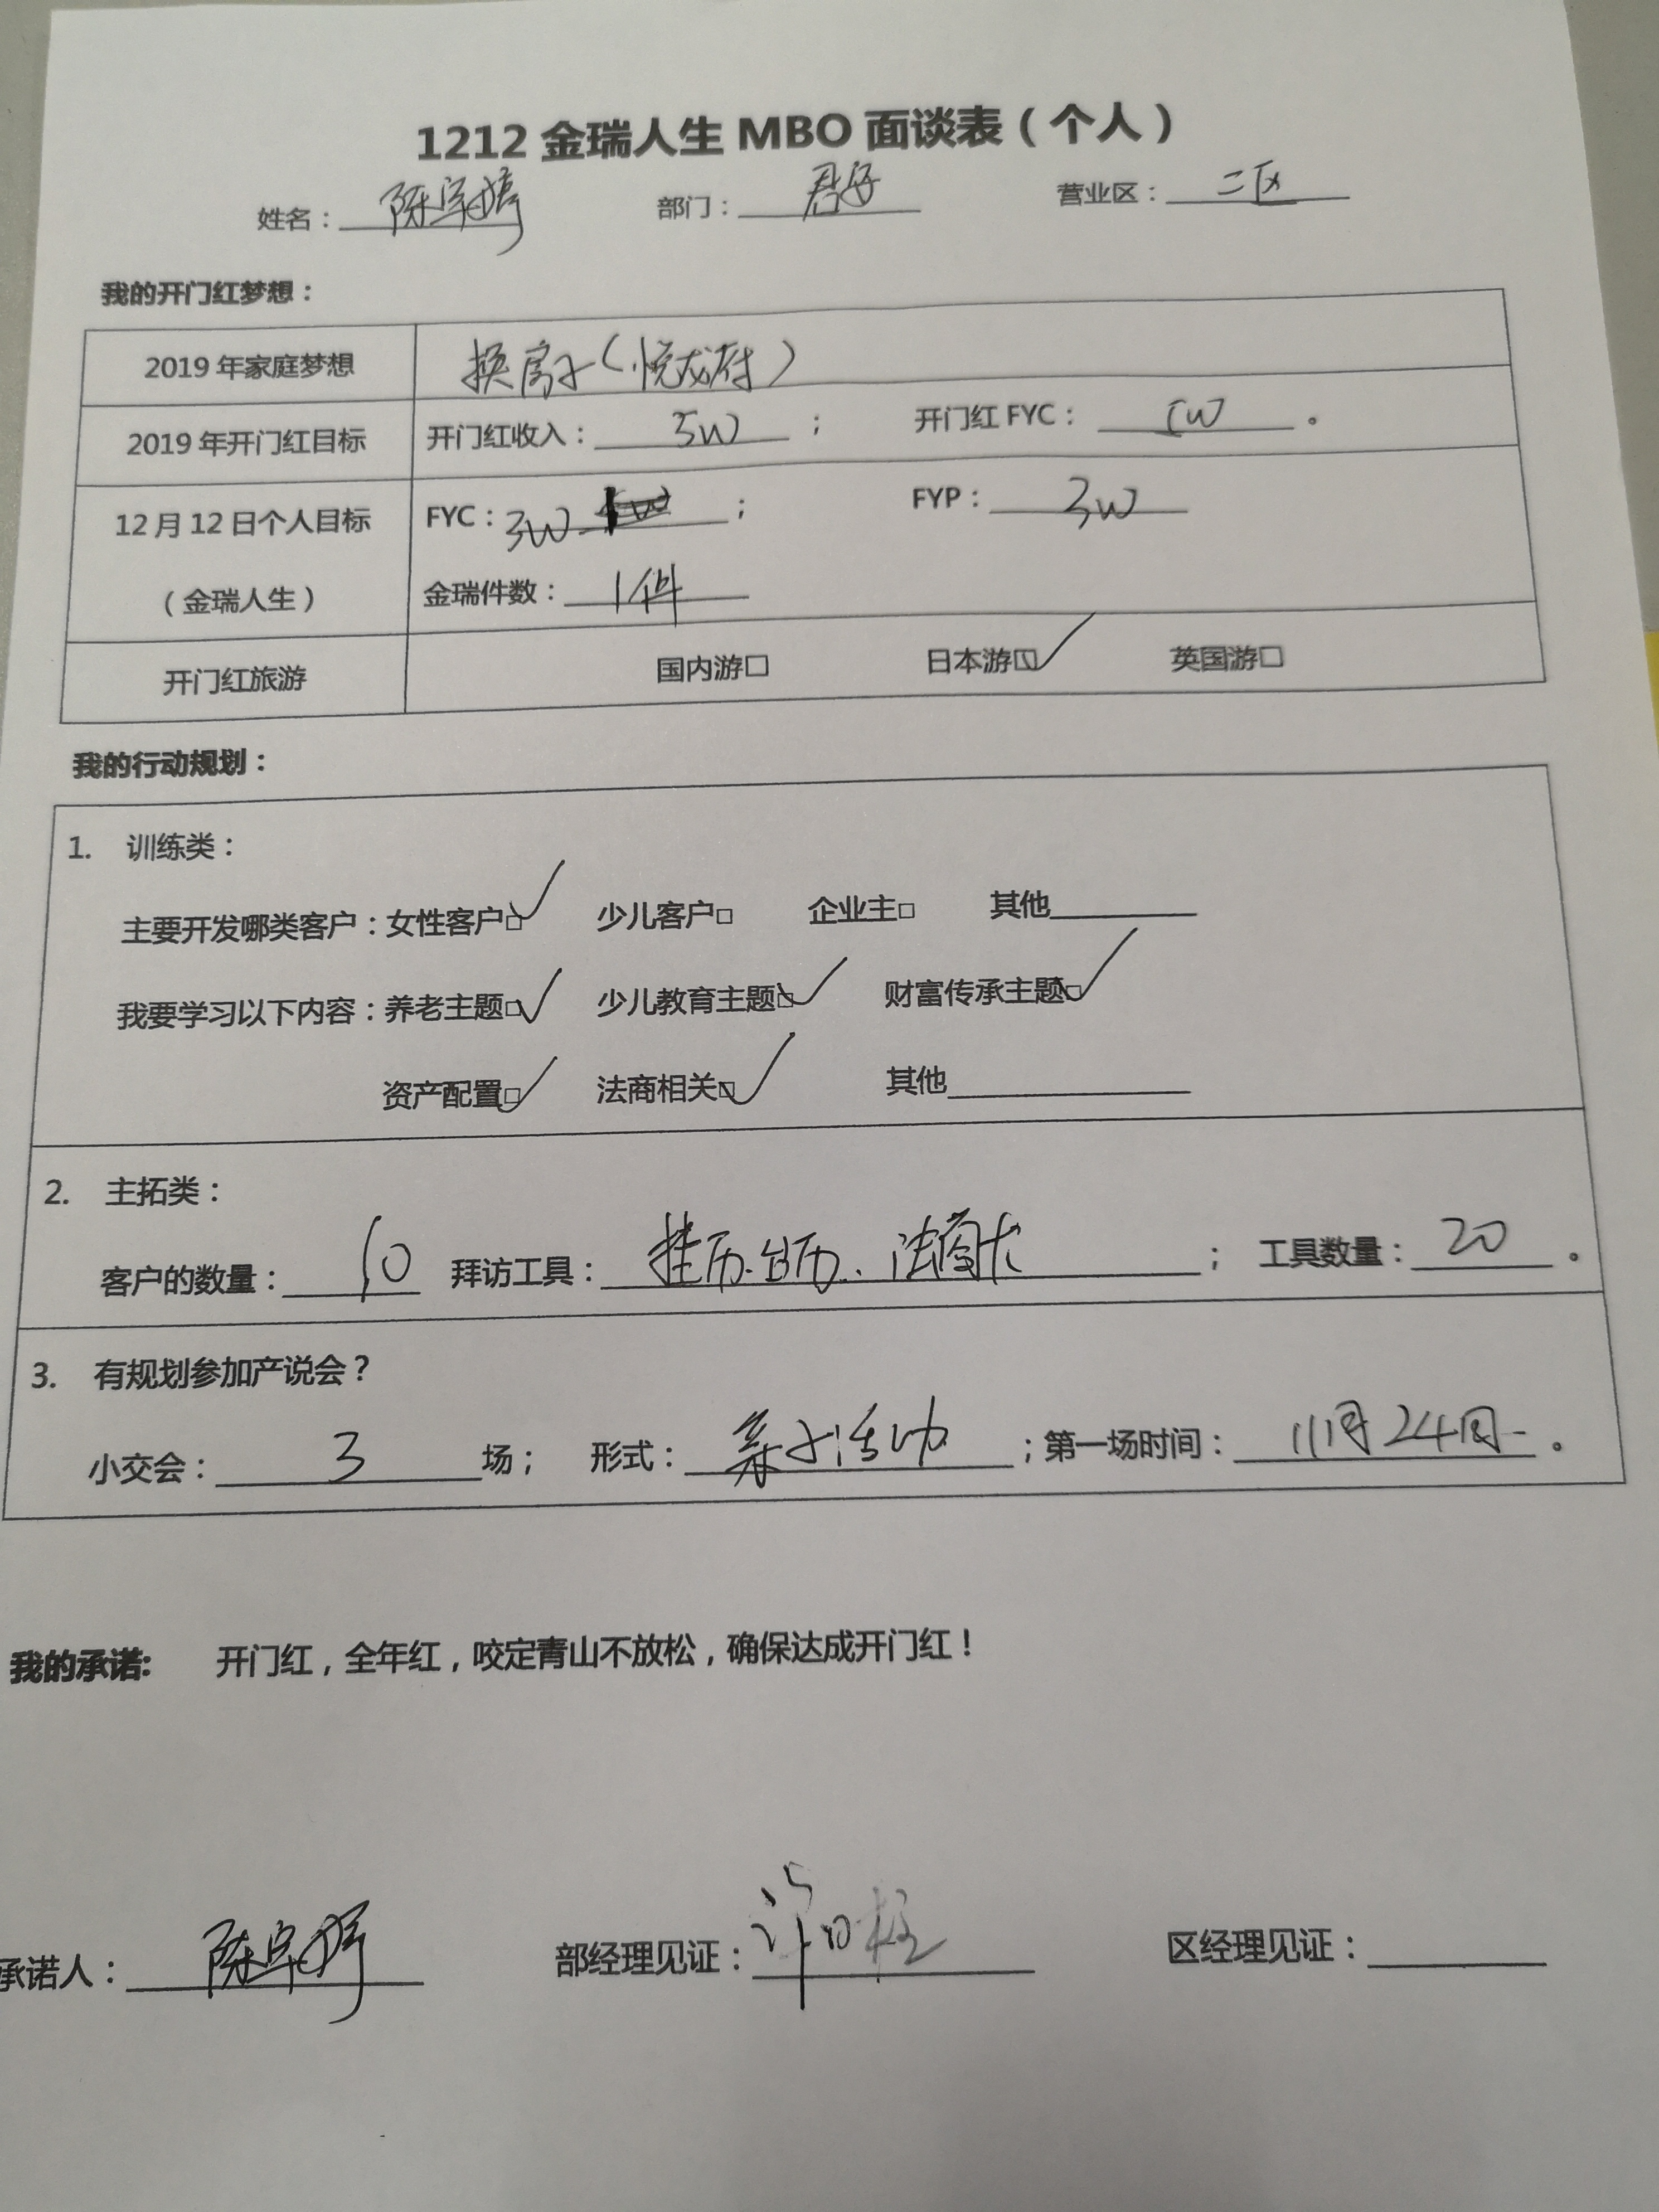 1212 金瑞人生 MBO 面谈表（个人）
姓名： 部门：君好 营业区：二区
我的开门红梦想：
2019 年家庭梦想 换房子（悦龙府）
2019 年开门红目标 开门红收入：5W； 开门红 FYC：5W。
12 月 12 日个人目标 FYC：3W； FYP：3W
（金瑞人生） 金瑞件数：1件
开门红旅游 国内游□ 日本游☑ 英国游□
我的行动规划：
1. 训练类：
主要开发哪类客户：女性客户☑ 少儿客户□ 企业主□ 其他
我要学习以下内容：养老主题☑ 少儿教育主题☑ 财富传承主题☑
资产配置☑ 法商相关☑ 其他
2. 主拓类：
客户的数量：10 拜访工具：挂历.台历.法商 ； 工具数量：20。
3. 有规划参加产说会？
小交会：3场； 形式：亲子活动；第一场时间：11月24周一。
我的承诺: 开门红，全年红，咬定青山不放松，确保达成开门红！
承诺人： 部经理见证： 区经理见证：